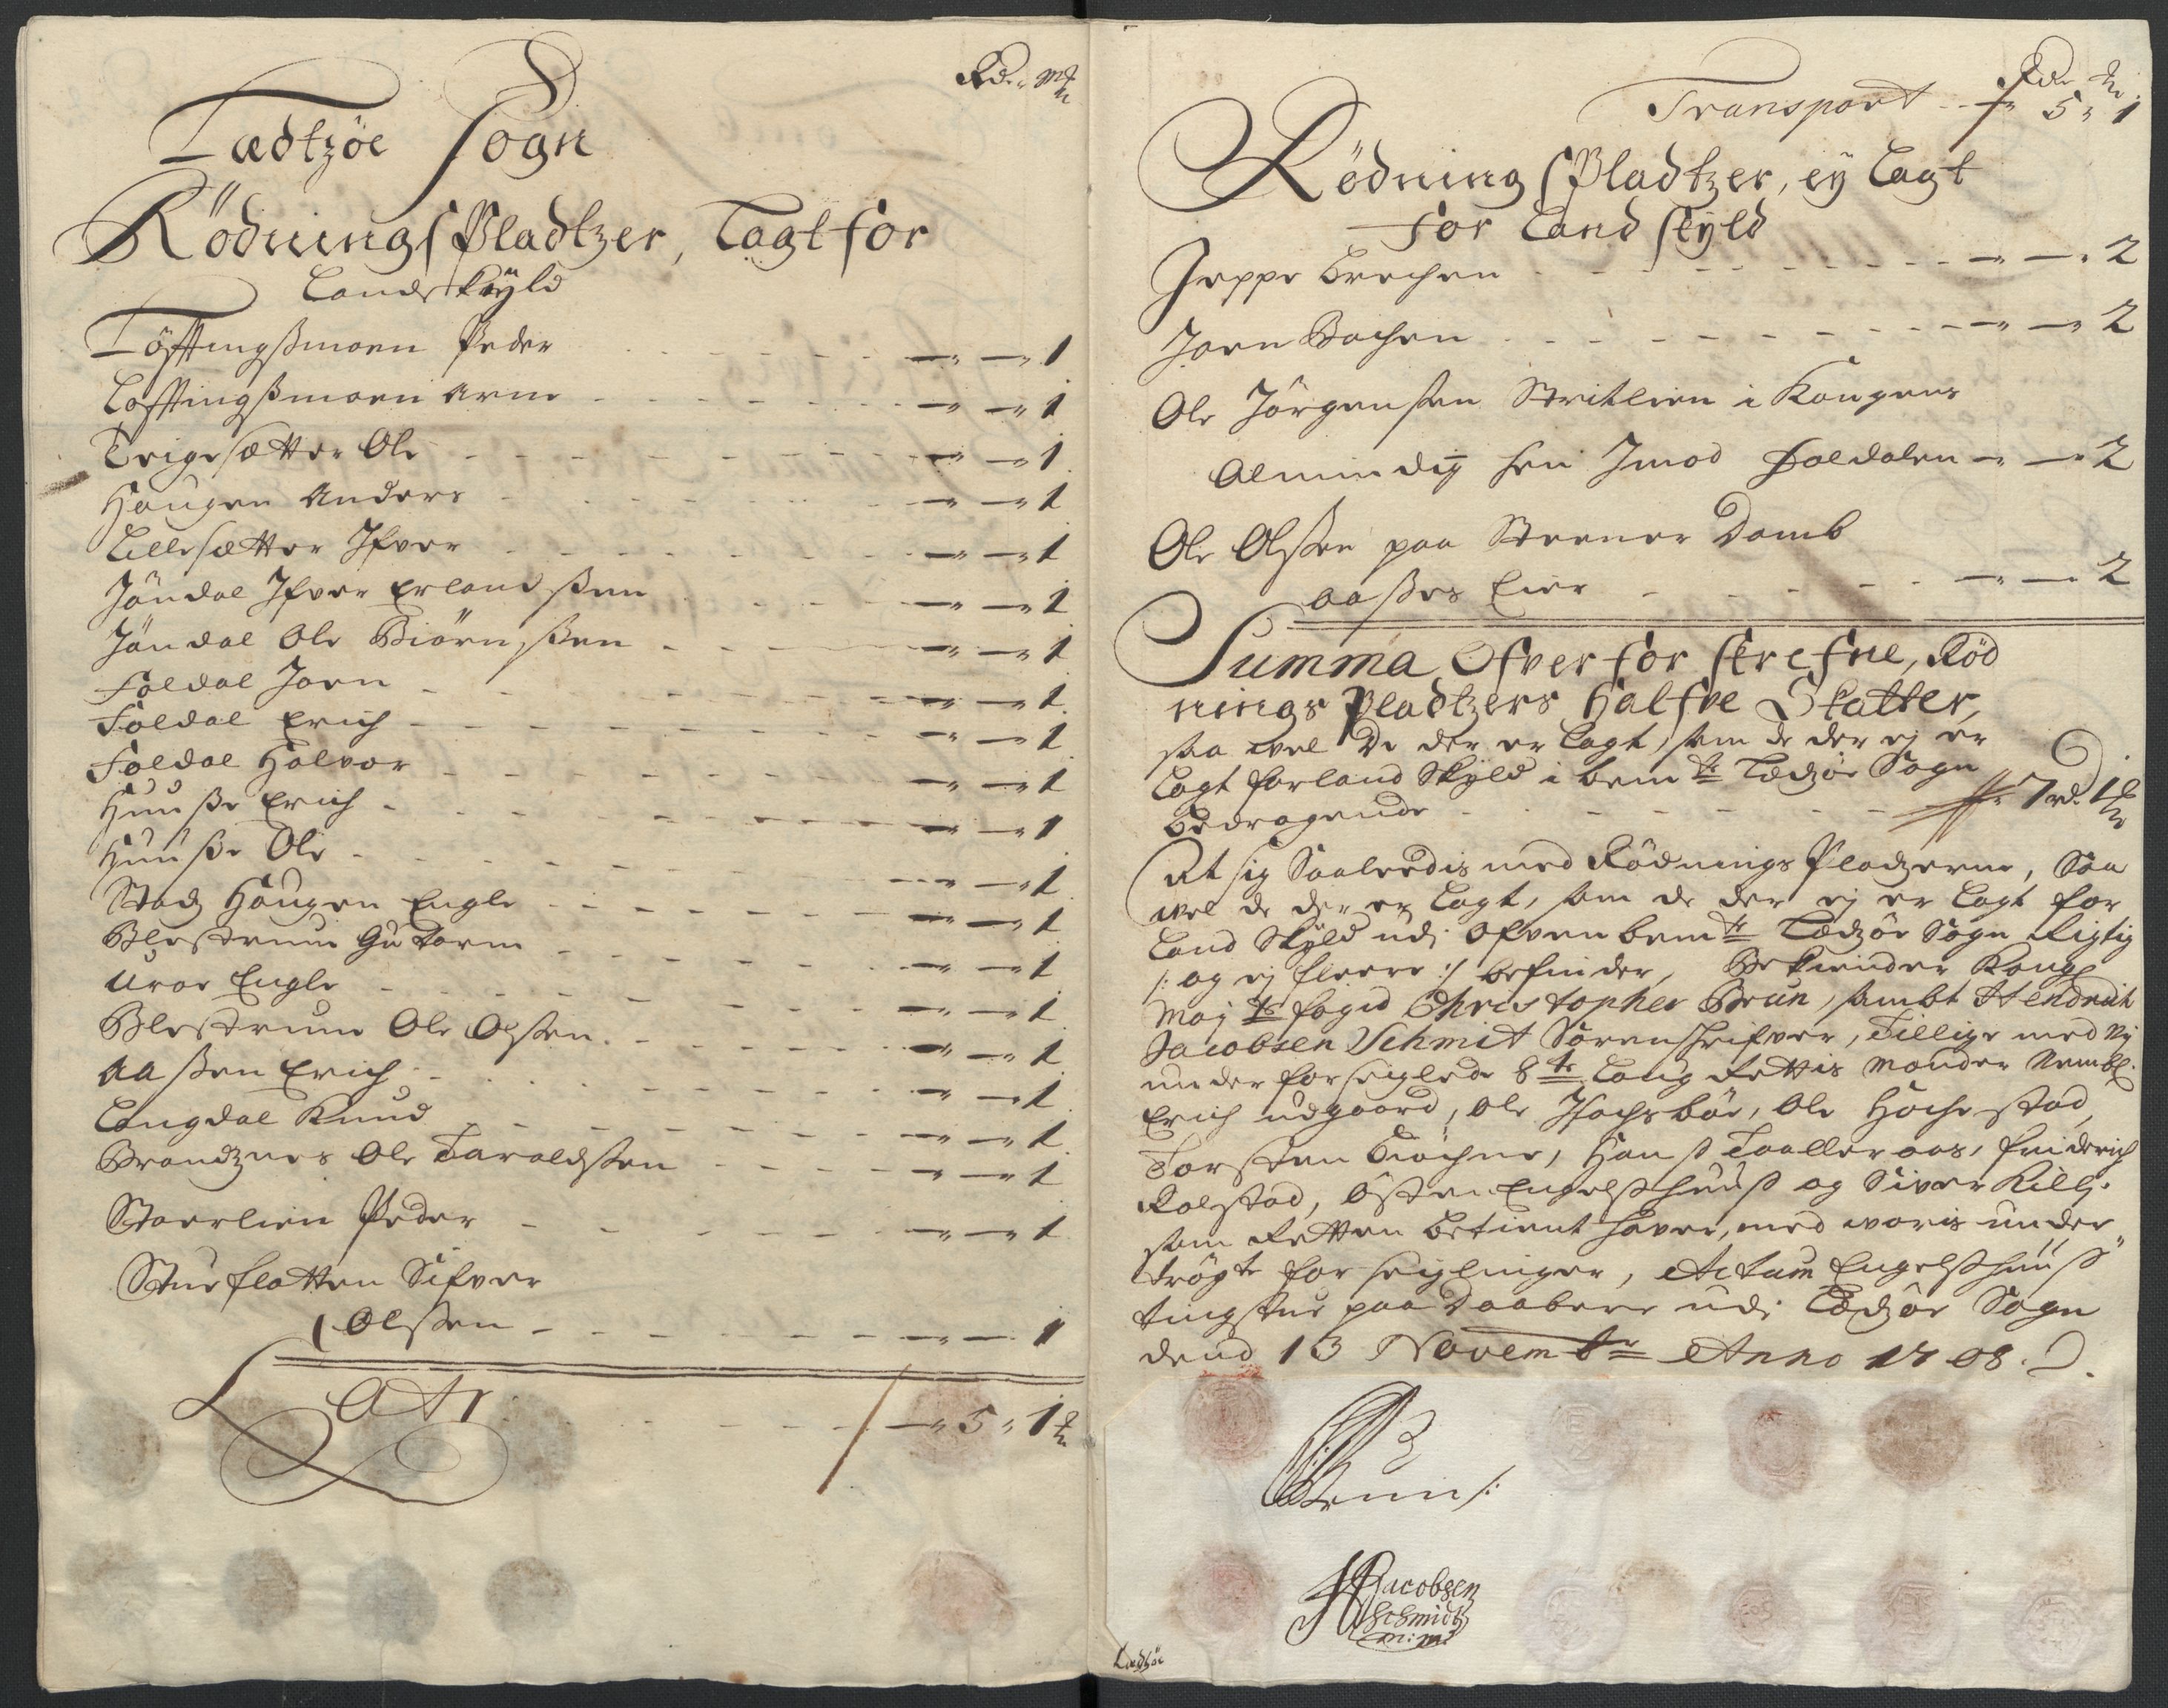 Rdr. Mk
Lædtzöe Sogn
Rödnings Pladtzer, Lagt for
Landskÿld
Löfftingsmoen Peder - - - 1
Lofftingsmoen Arne - - - 1
Enigesætter Ole - - - 1
Haugen Anders - - - 1
Lillesætter Ifver - - - 1
Jöndal Ifver Erlandßen - - - 1
Jöndal Ole Biörnßen - - - 1
Foldal Joen - - - 1
Foldal Erich - - - 1
Foldal Halvor - - - 1
Huuße Erich - - - 1
Huuße Ole - - - 1
Stadz Haugen Engle - - - 1
Blestrum Gutorm - - - 1
Uroe Engle - - - 1
Blestrum Ole Olßen - - - 1
Aaßen Erich - - - 1
Langdal Knud - - - 1
Brandznes Ole Taraldßen - - - 1
Storlien Peder - - - 1
Stueflotten Sifver
Olßen - - - 1
Latr - - - 5 " 1
Transport - - 5 " 1
Rödnings Pladtzer, eÿ Lagt
for Landskÿld
Jeppe Brechen - - - 2
Joen Bachen - - - 2
Ole Jörgenßen Stritlien i Kongens
Almindig hen Imod Foldalen - - 2
Ole Olßen paa Steener Domb
Aaßes Eier - - - 2
Summa Ofver for skrefne, Röd
nings Pladtzers Halfve Skatter,
saa vel De der er Lagt, som de der ej er
Lagt for land Skÿld i bemte Lædzöe Sogn
Bedragende - - - 7 rd. 1
At sig Saaleedis med Rödnings Pladzerne, Saa
vel de der er Lagt, som de der ej er Lagt for
Land Skÿld udj Ofvenbemte Lædzöe Sogn Rigtig
/: og ej fleere :/ befinder, Bekiender Kongl
Maj ts foged Christopher Brun, sambt Hendrich
Jacobsen Schmit Sorenskrifver, Tillige med Nÿ
under forseiglede 8te Laug Rettis Mænder Nembl.
Erich udgaard, Ole Isachsböe, Ole Hochestad,
Torsten Biöchne, Hans Taalleraas, Friderich
Kolstad, Östen Engelßhuus og Siver Killj.
som Retten betient haver, med voris under
trögte forseiglinger, Actum Engelßhuus
tingstue paa Daabere udj Lædzöe Sogn
dend 13 Novembr Anno 1708.
Brun /:
HJacobsen
Schmidt
m: m:
Lædtzöe